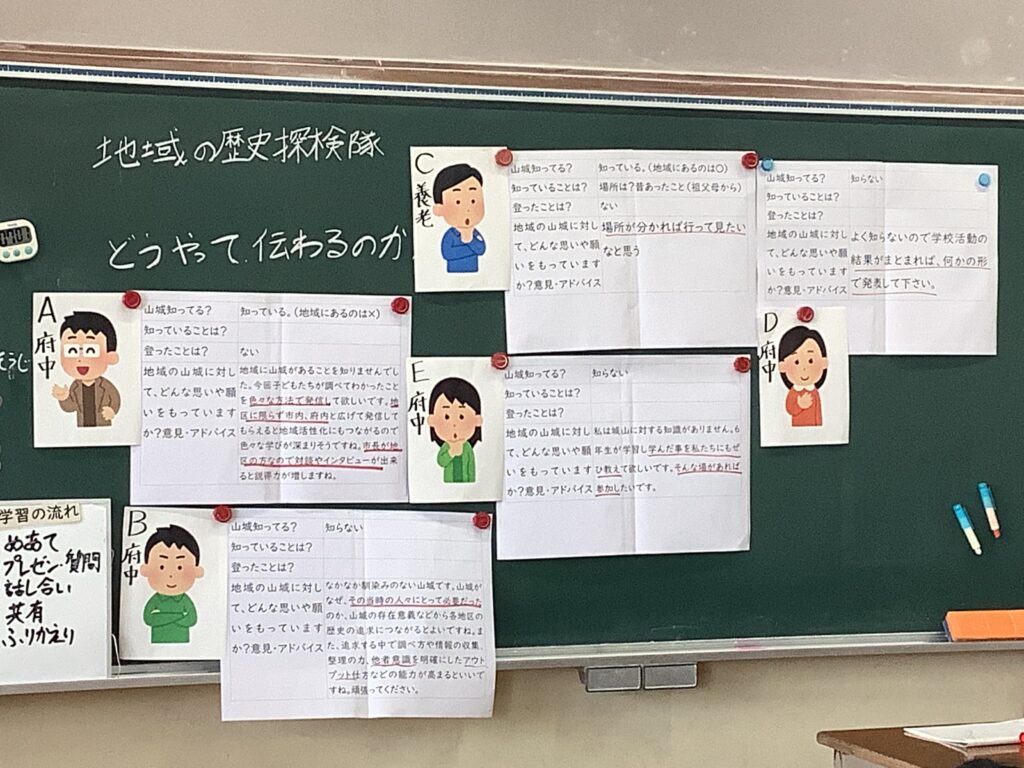 地域の歴史探検隊
どうやって伝わるのか
C 養老
山城知ってる? 知っている。(地域にあるのは○)
知っていることは? 場所は?昔あったこと(祖父母から)
登ったことは? ない
地域の山城に対し
て、どんな思いや願
いをもっています
か?意見・アドバイス
場所が分かれば行って見たい
なと思う
山城知ってる? 知らない
知っていることは?
登ったことは?
地域の山城に対し
て、どんな思いや願
いをもっています
か?意見・アドバイス
よく知らないので学校活動の
結果がまとまれば、何かの形
で発表して下さい。
D 府中
A 府中
山城知ってる? 知っている。(地域にあるのは×)
知っていることは?
登ったことは? ない
地域の山城に対し
て、どんな思いや願
いをもっています
か?意見・アドバイス
地域に山城があることを知りませんでし
た。今回子どもたちが調べてわかったこと
を色々な方法で発信して欲しいです。地
区に限らず市内、府内と広げて発信して
もらえると地域活性化にもつながるので
色々な学びが深まりそうですね。市長が地
区の方なので対談やインタビューが出来
ると説得力が増しますね。
E 府中
山城知ってる? 知らない
知っていることは?
登ったことは?
地域の山城に対し
て、どんな思いや願
いをもっています
か?意見・アドバイス
私は城山に対する知識がありません。6
年生が学習し学んだ事を私たちにもぜ
ひ教えて欲しいです。そんな場があれば
参加したいです。
B 府中
山城知ってる? 知らない
知っていることは?
登ったことは?
地域の山城に対し
て、どんな思いや願
いをもっています
か?意見・アドバイス
なかなか馴染みのない山城です。山城が
なぜ、その当時の人々にとって必要だった
のか、山城の存在意義などから各地区の
歴史の追求につながるとよいですね。ま
た、追求する中で調べ方や情報の収集、
整理の力、他者意識を明確にしたアウト
プット仕方などの能力が高まるといいで
すね。頑張ってください。
学習の流れ
めあて
プレゼン・質問
話し合い
共有
ふりかえり